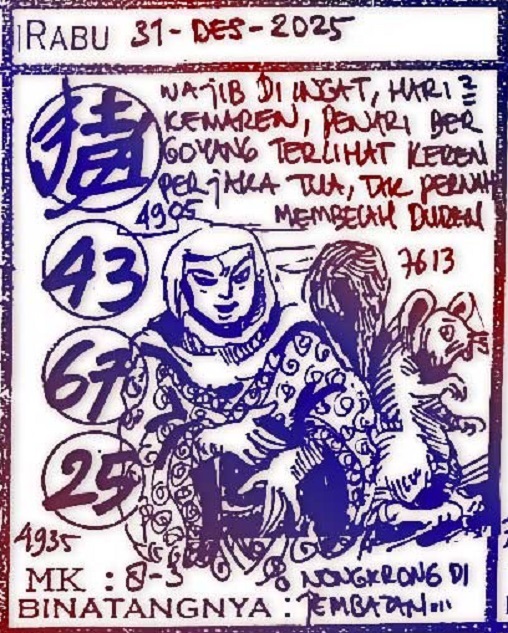 RABU 31-DES-2025
WAJIB DI INGAT, HARI2
KEMAREN, PENARI BER
GOYANG TERLIHAT KEREN
PERJAKA TUA, TAK PERNAH
MEMBELAH DUREN
4905
43
7613
67
25
4935
MK : 8-3
NONGKRONG DI
BINATANGNYA : JEMBATAN...